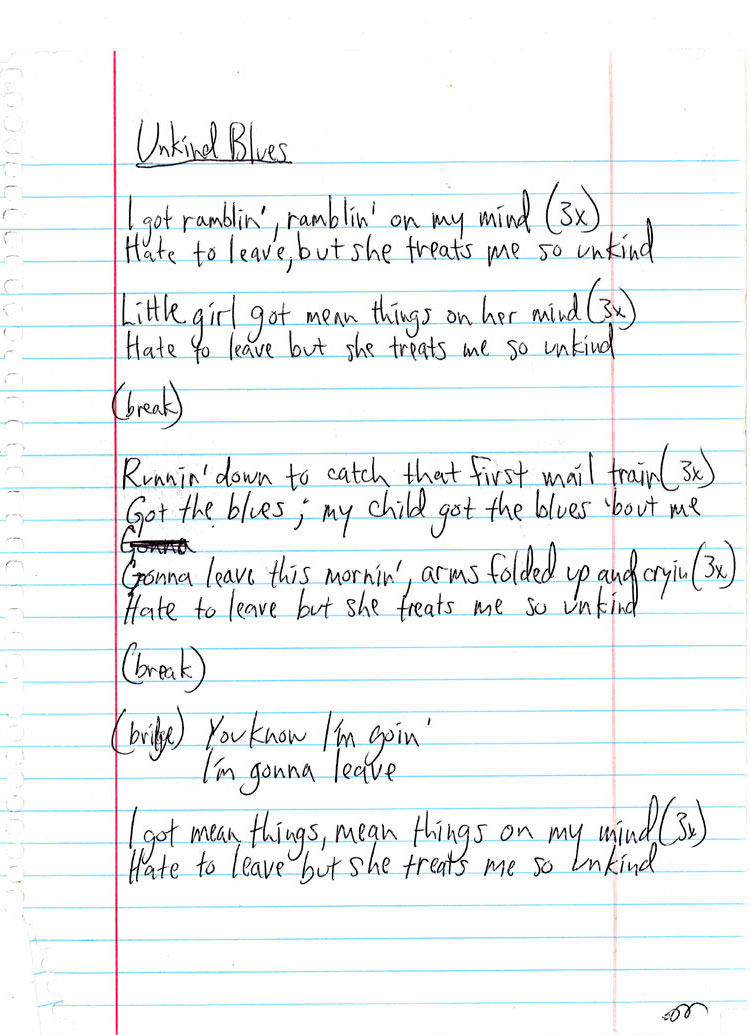 Unkind Blues
I got ramblin', ramblin' on my mind (3x)
Hate to leave, but she treats me so unkind
Little girl got mean things on her mind (3x)
Hate to leave but she treats me so unkind
(break)
Runnin' down to catch that first mail train (3x)
Got the blues; my child got the blues 'bout me
Gonna
Gonna leave this mornin', arms folded up and cryin (3x)
Hate to leave but she treats me so unkind
(break)
(bridge) You know I'm goin'
I'm gonna leave
I got mean things, mean things on my mind (3x)
Hate to leave but she treats me so unkind